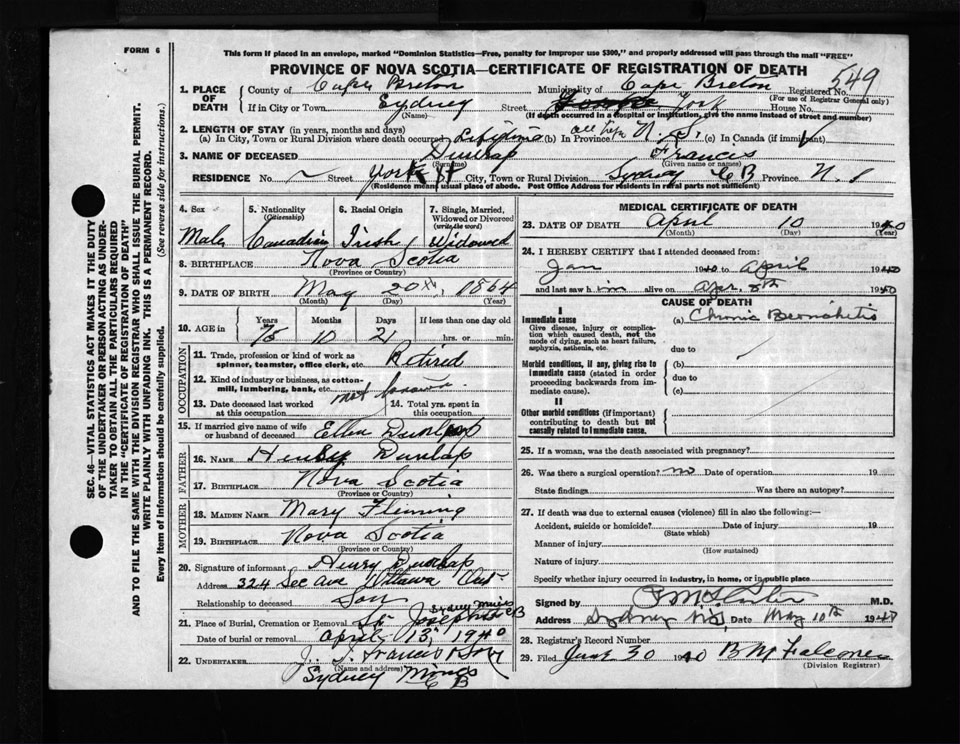 FORM 6
This form if placed in an envelope, marked "Dominion Statistics—Free, penalty for improper use $300," and properly addressed will pass through the mail "FREE"
PROVINCE OF NOVA SCOTIA—CERTIFICATE OF REGISTRATION OF DEATH
549
1. PLACE OF DEATH
County of Cape Breton Municipality of Cape Breton Registered No.
(For use of Registrar General only)
If in City or Town Sydney Street York House No.
(Name) (If death occurred in a hospital or institution, give name instead of street and number)
2. LENGTH OF STAY (in years, months and days)
(a) In City, Town or Rural Division where death occurred Lifetime (b) In Province N.S. (c) In Canada (if immigrant)
3. NAME OF DECEASED Dunlap Francis
(Surname) (Given name or names)
RESIDENCE No. Street York St City, Town or Rural Division Sydney CB Province N.S
(Residence means usual place of abode. Post Office Address for residents in rural parts not sufficient)
4. Sex Male
5. Nationality (Citizenship) Canadian
6. Racial Origin Irish
7. Single, Married, Widowed or Divorced (write the word) Widowed
8. BIRTHPLACE Nova Scotia
(Province or Country)
9. DATE OF BIRTH May 20th, 1864
(Month) (Day) (Year)
10. AGE in Years Months Days If less than one day old
75 10 21 hrs. or min.
OCCUPATION
11. Trade, profession or kind of work as spinner, teamster, office clerk, etc. Retired
12. Kind of industry or business, as cotton-mill, lumbering, bank, etc. not known
13. Date deceased last worked at this occupation
14. Total yrs. spent in this occupation
15. If married give name of wife or husband of deceased Ellen Dunlap
FATHER
16. NAME Henry Dunlap
17. BIRTHPLACE Nova Scotia
(Province or Country)
MOTHER
18. MAIDEN NAME Mary Fleming
19. BIRTHPLACE Nova Scotia
(Province or Country)
20. Signature of informant Henry Dunlap
Address 324 Sec Ave Ottawa Ont
Relationship to deceased Son
21. Place of Burial, Cremation or Removal St Josephs Sydney Mines CB
Date of burial or removal April 13, 1940
22. UNDERTAKER J. J. Francis & Son
(Name and address)
Sydney Mines CB
MEDICAL CERTIFICATE OF DEATH
23. DATE OF DEATH April 10 1940
(Month) (Day) (Year)
24. I HEREBY CERTIFY that I attended deceased from:
Jan 1940 to April 1940
and last saw him alive on Apr. 8th 1940
CAUSE OF DEATH
I
Immediate cause
Give disease, injury or complication which caused death, not the mode of dying, such as heart failure, asphyxia, asthenia, etc.
(a) Chronic Bronchitis
due to
Morbid conditions, if any, giving rise to immediate cause (stated in order proceeding backwards from immediate cause).
(b)
due to
(c)
II
Other morbid conditions (if important) contributing to death but not causally related to immediate cause.
25. If a woman, was the death associated with pregnancy?
26. Was there a surgical operation? no Date of operation 19
State findings Was there an autopsy?
27. If death was due to external causes (violence) fill in also the following:—
Accident, suicide or homicide? Date of injury 19
(State which)
Manner of injury
(How sustained)
Nature of injury
Specify whether injury occurred in industry, in home, or in public place
Signed by M.D.
Address Sydney N.S. Date May 10th 1940
28. Registrar's Record Number
29. Filed June 30 1940 B M Falconer
(Division Registrar)
SEC. 46—VITAL STATISTICS ACT MAKES IT THE DUTY OF THE UNDERTAKER OR PERSON ACTING AS UNDERTAKER TO OBTAIN ALL THE PARTICULARS REQUIRED IN THE "CERTIFICATE OF REGISTRATION OF DEATH" AND TO FILE THE SAME WITH THE DIVISION REGISTRAR WHO SHALL ISSUE THE BURIAL PERMIT.
WRITE PLAINLY WITH UNFADING INK. THIS IS A PERMANENT RECORD.
Every item of information should be carefully supplied. (See reverse side for instructions.)